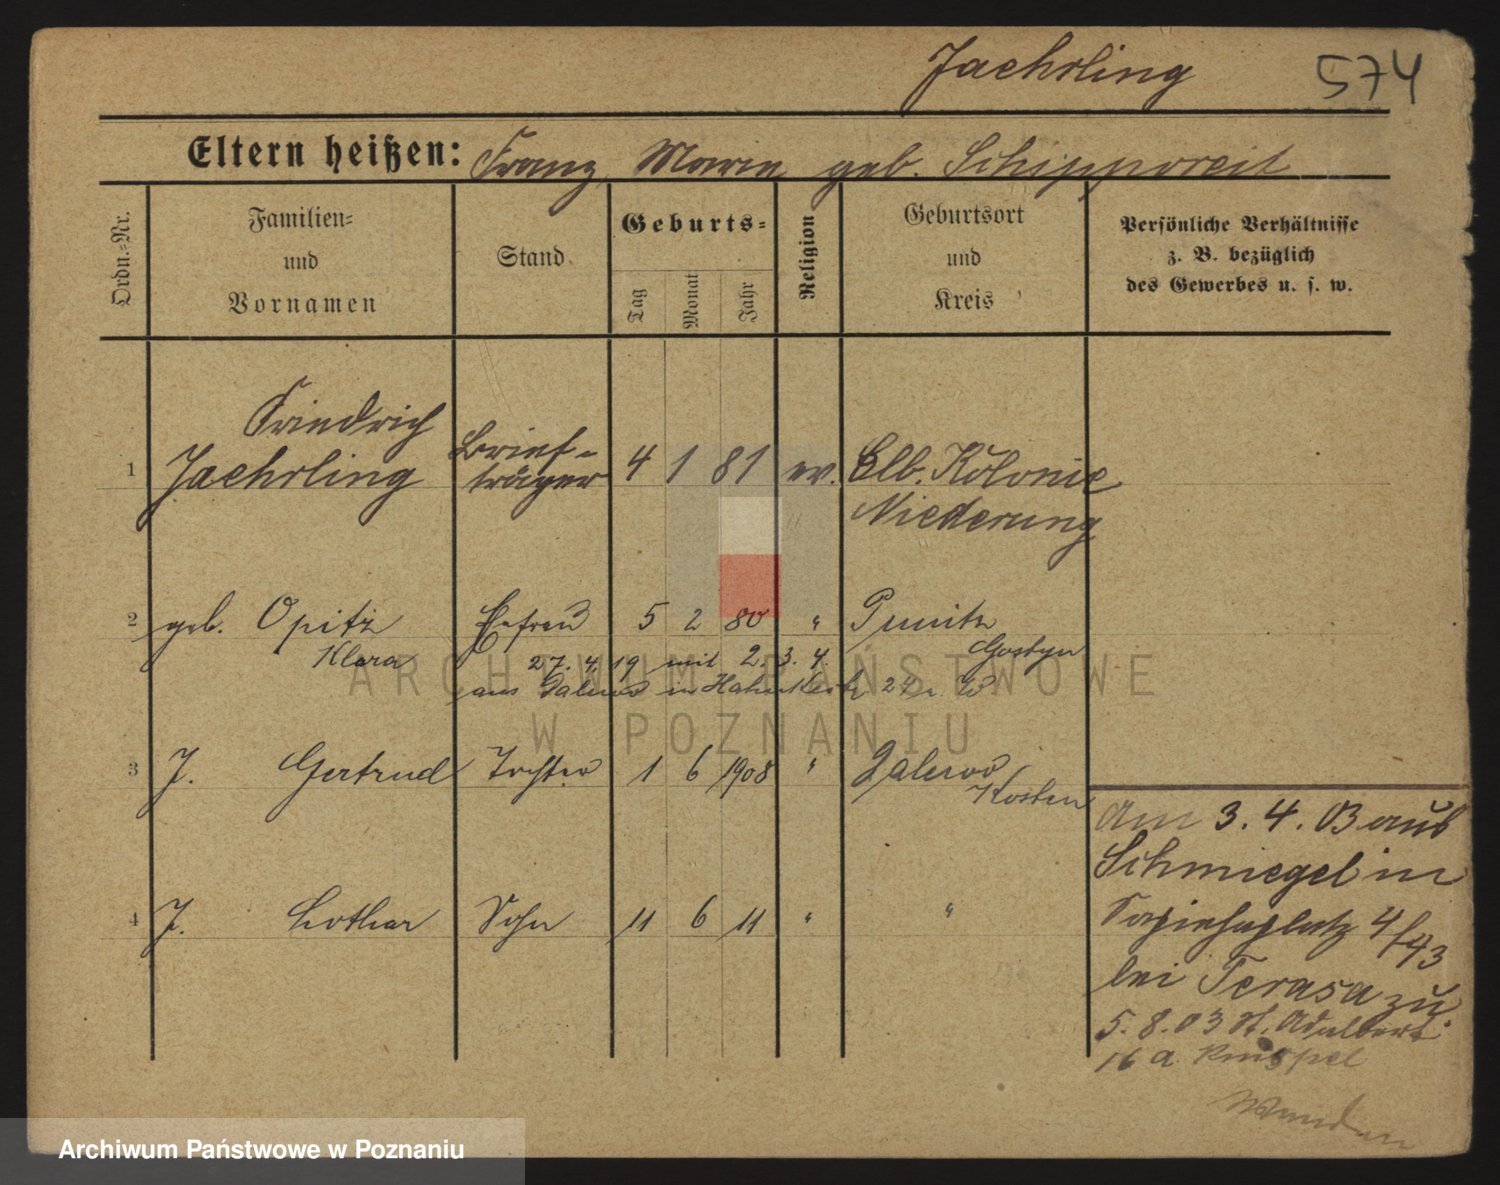 Jaehrling 574
Eltern heißen: Franz, Marie geb. Schippereit
Ordn.-Nr.
Familien- und Vornamen
Stand
Geburts-
Tag Monat Jahr
Religion
Geburtsort und Kreis
Persönliche Verhältnisse
z. B. bezüglich
des Gewerbes u. s. w.
Friedrich
1 Jaehrling Brief- 4 1 81 ev. Elb. Kolonie
träger Niederung
2 geb. Opitz Ehefrau 5 2 80 " Punitz
Klara Gostyn
27. 4. 19 mit 2. 3. 4.
aus in 24
3 J. Gertrud Tochter 1 6 1908 " Zalesvo
Kosten
4 J. Lothar Sohn 11 6 11 " "
Am 3. 4. 03 aus
Schmiegel in
Sapiehaplatz 4/43
bei Terasa zu.
5. 8. 03 St. Adalbert
16 a
ARCHIWUM PAŃSTWOWE
W POZNANIU
Archiwum Państwowe w Poznaniu